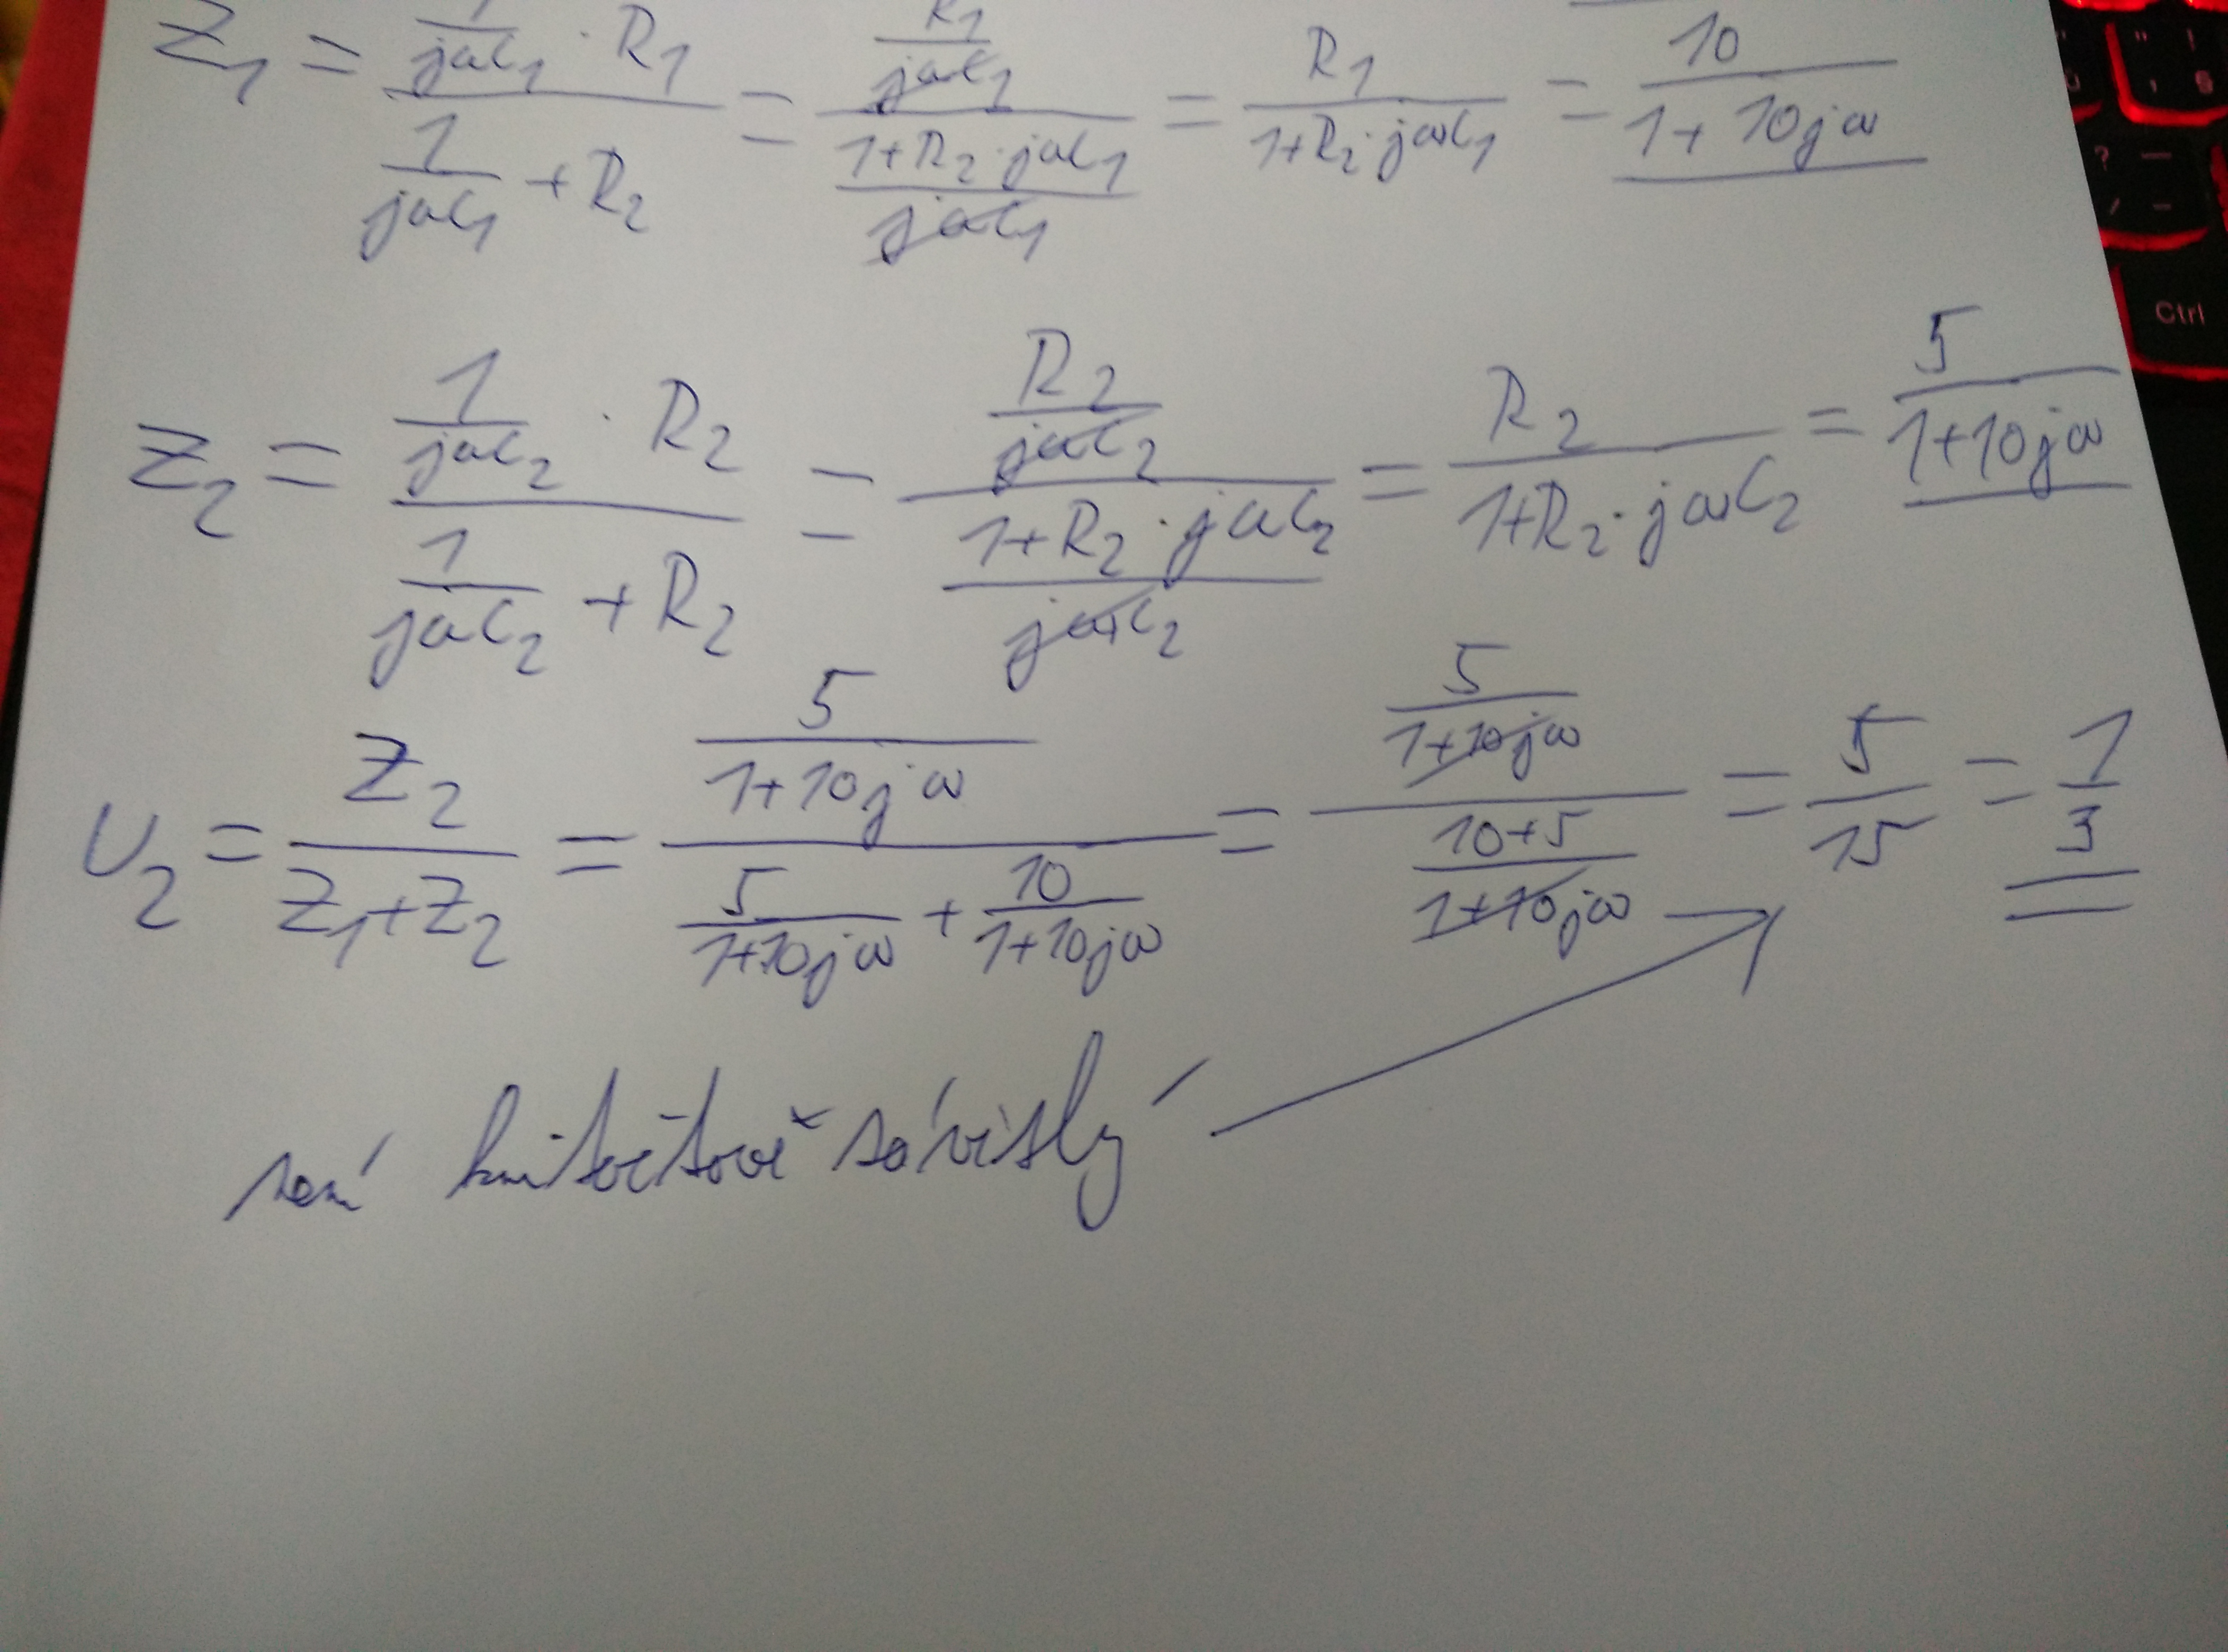 Z₁ = (1/(jωC₁) · R₁)/(1/(jωC₁) + R₂) = (R₁/(jωC₁))/((1+R₂·jωC₁)/(jωC₁)) = R₁/(1+R₂·jωC₁) = 10/(1+10jω)
Z₂ = (1/(jωC₂) · R₂)/(1/(jωC₂) + R₂) = (R₂/(jωC₂))/((1+R₂·jωC₂)/(jωC₂)) = R₂/(1+R₂·jωC₂) = 5/(1+10jω)
U₂ = Z₂/(Z₁+Z₂) = (5/(1+10jω))/(5/(1+10jω) + 10/(1+10jω)) = (5/(1+10jω))/((10+5)/(1+10jω)) = 5/15 = 1/3
není kmitočtově závislý
Ctrl